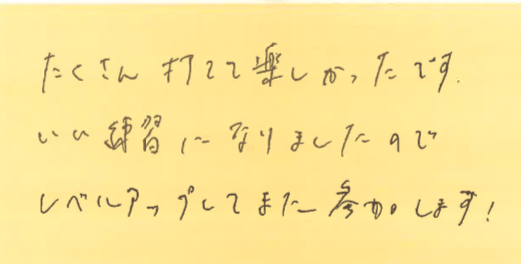 たくさん打てて楽しかったです.
いい練習になりましたので
レベルアップしてまた参加します!